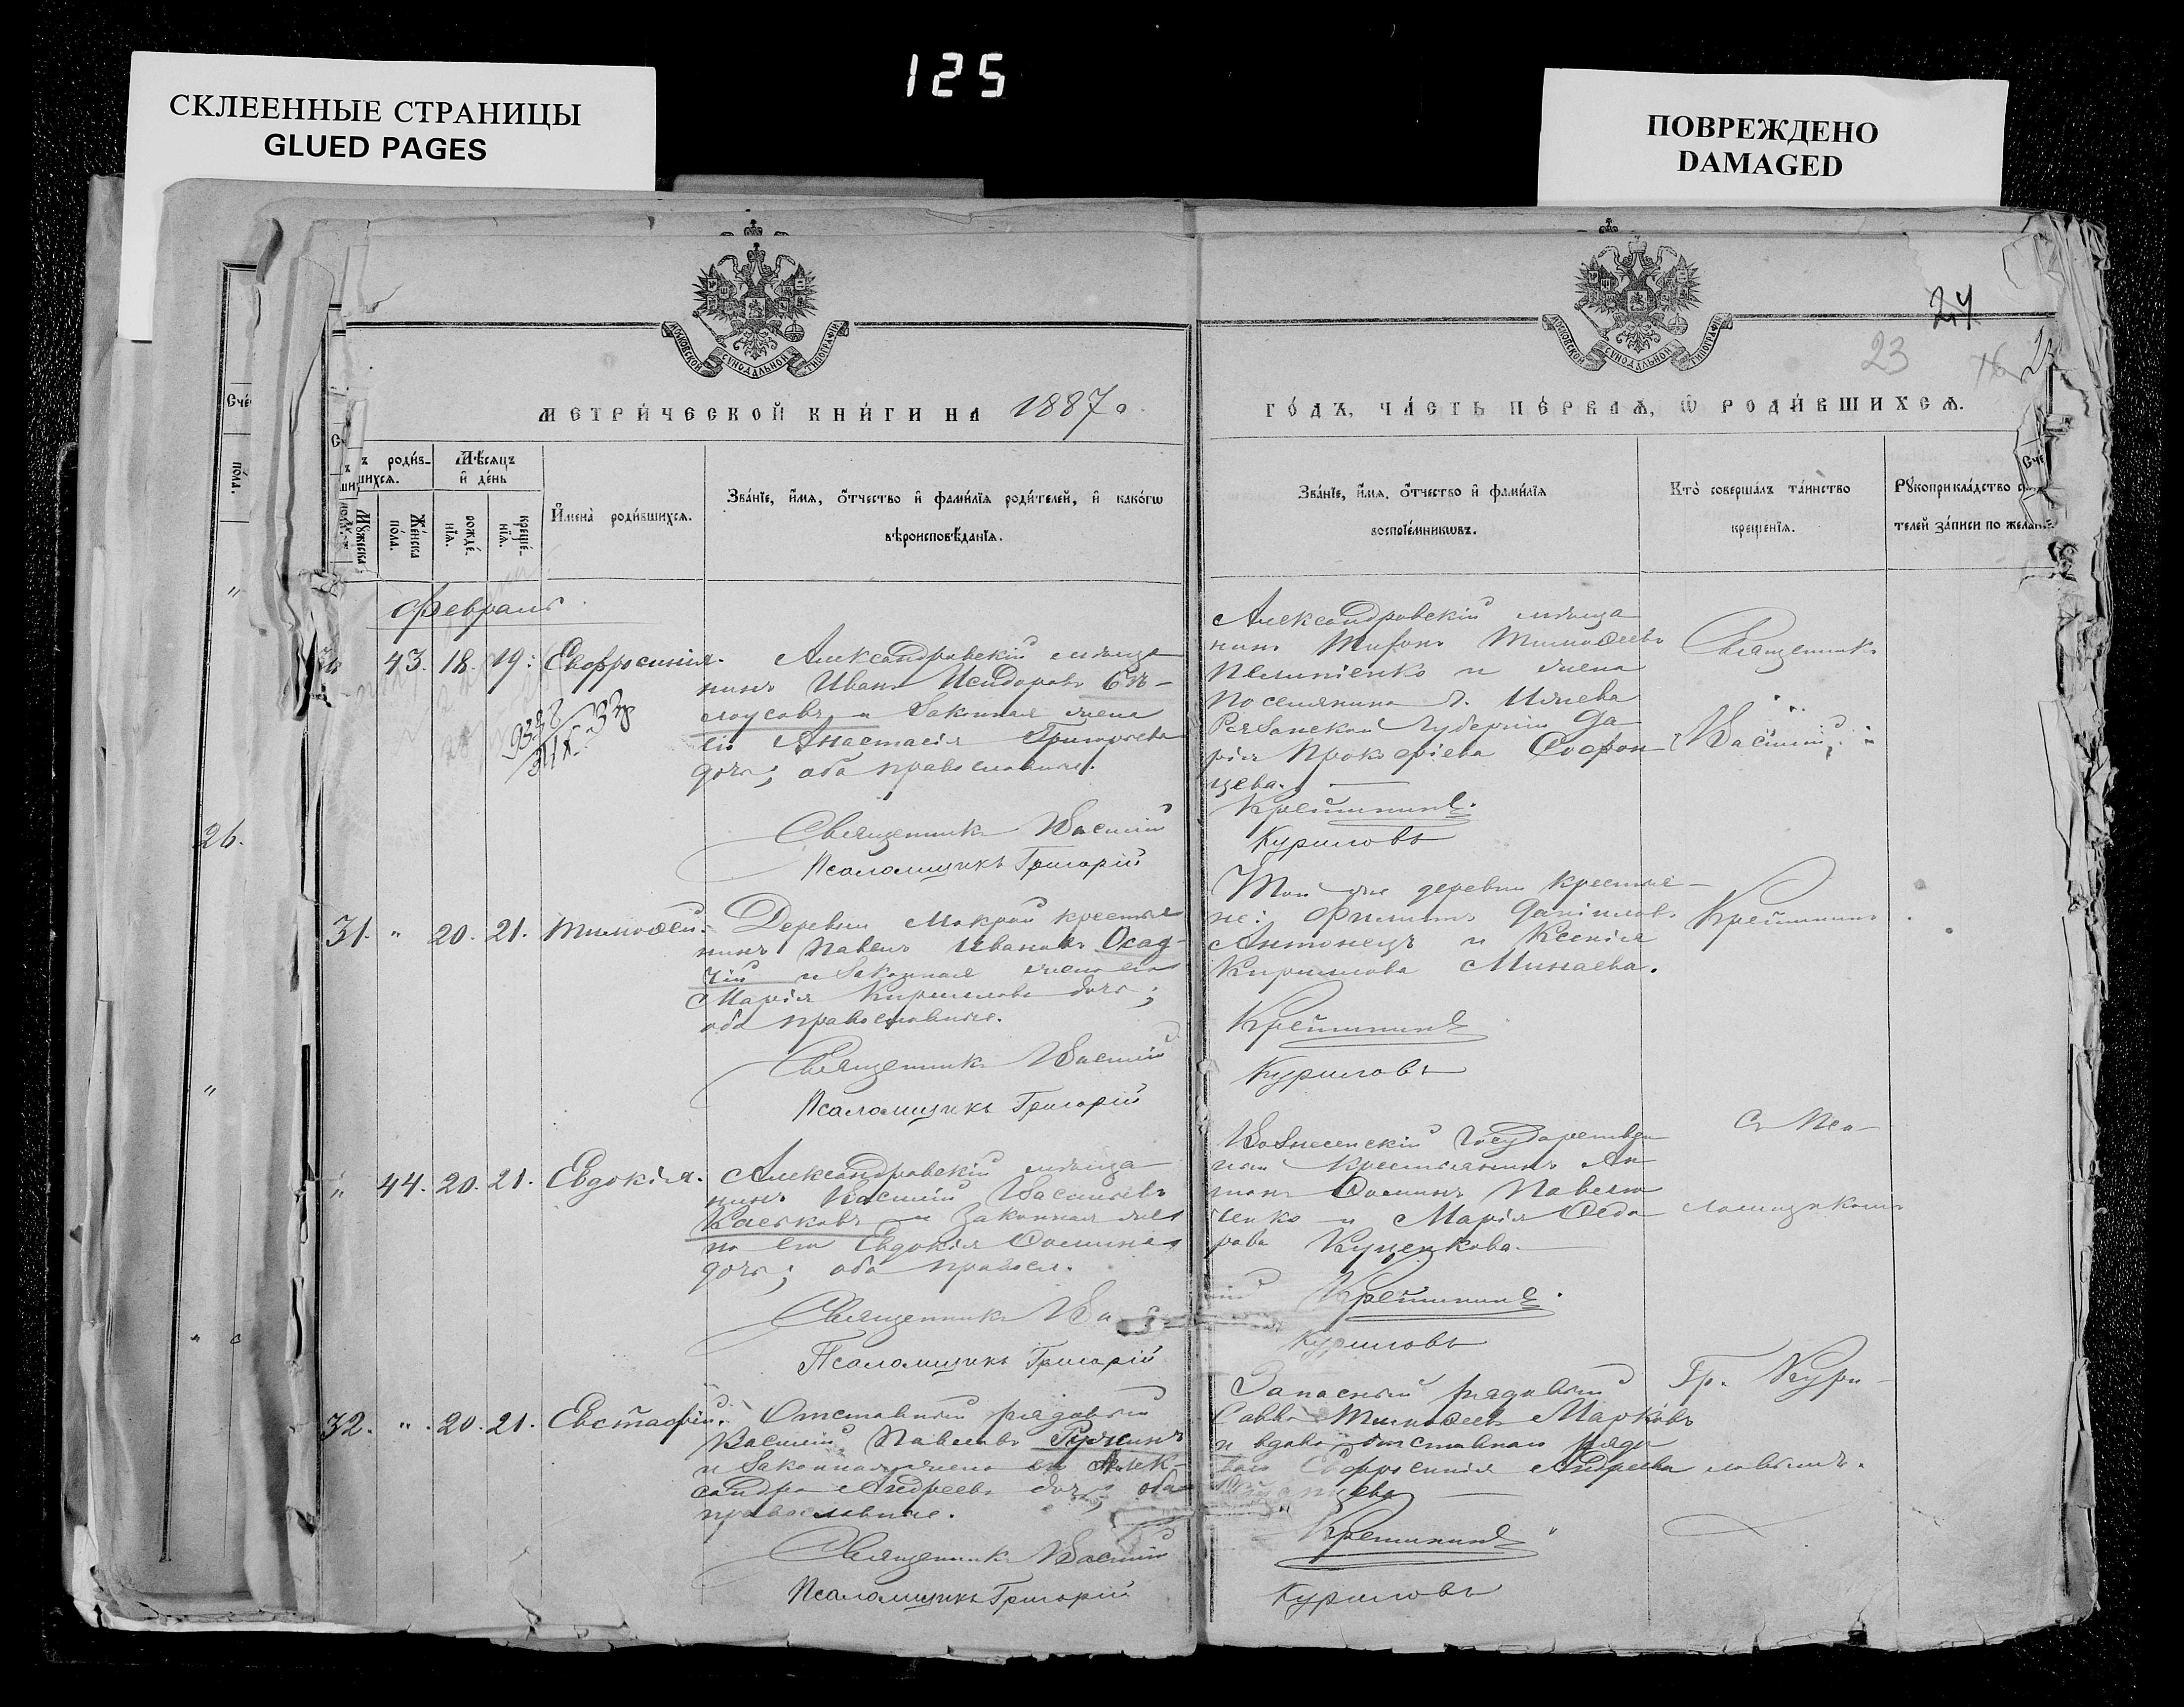 125
СКЛЕЕННЫЕ СТРАНИЦЫ
GLUED PAGES
ПОВРЕЖДЕНО
DAMAGED
МОСКОВСКОЙ СѴНОДАЛЬНОЙ ТИПОГРАФІИ
МОСКОВСКОЙ СѴНОДАЛЬНОЙ ТИПОГРАФІИ
24
23
МЕТРИ́ЧЕСКОЙ КНИ́ГИ НА 1887
ГО́ДЪ, ЧА́СТЬ ПЕ́РВАѦ, Ѿ РОДИ́ВШИХСѦ.
роди́в-
шихсѧ.
Мѣ́сѧцъ
и҆ де́нь
Мꙋ́жеска
Же́нска
по́ла.
рожде́-
нїѧ.
креще́-
нїѧ.
И҆мена̀ роди́вшихсѧ.
Зва́нїе, и҆́мѧ, о҆́тчество и҆ фами́лїѧ роди́телей, и҆ како́гѡ
вѣроисповѣ́данїѧ.
Зва́нїе, и҆́мѧ, о҆́тчество и҆ фами́лїѧ
воспрїе́мникѡвъ.
Кто̀ соверша́лъ та́инство
креще́нїѧ.
Рꙋкоприкла́дство
телей за́писи по
по́ла.
26.
Февраль
43. 18. 19. Евфросинія.
Александровскій мѣща
нинъ Иванъ Исидоровъ Бѣ-
лоусовъ и законная жена
его Анастасія Григорьева
дочь; оба православные.
Священникъ Василій
Псаломщикъ Григорій
Александровскій мѣща
нинъ Тимоѳеевъ
и жена
поселянина
Рязанской Губерніи Да
рія Прокофіева Софрон
цева.
Крейшнинъ.
Куриловъ
Священникъ
Василій
31. " 20. 21. Тимоѳей.
Деревни Мокрой крестья
нинъ Павелъ Ивановъ Осад-
чій и законная жена его
Марія Кириллова дочь;
оба православные.
Священникъ Василій
Псаломщикъ Григорій
Той же деревни крестья-
не: Филиппъ Даніиловъ
Антонецъ и Ксенія
Кириллова Минаева.
Крейшнинъ
Куриловъ
Крейшнинъ
" 44. 20. 21. Евдокія.
Александровскій мѣща
нинъ Василій Васильевъ
Каськовъ и законная же
на его Евдокія Ѳомина
дочь; оба правосл.
Священникъ Ва
Псаломщикъ Григорій
Вознесенскій Государствен
ный крестьянинъ Ан
тонъ Ѳоминъ Павлю
ченко и Марія Ѳедо
рова Куценкова.
Крейшнинъ.
Куриловъ
съ Пса-
ломщикомъ
32. " 20. 21. Евстафій.
Отставный рядовый
Василій Павловъ
и законная жена его Алек-
сандра Андреева дочь; оба
православные.
Священникъ Василій
Псаломщикъ Григорій
Запасный рядовый
Савва Тимоѳеевъ Марковъ
и вдова отставнаго рядо
ваго Евфросинія Андреева
Крейшнинъ
Куриловъ
Гр. Кури-
ловымъ.